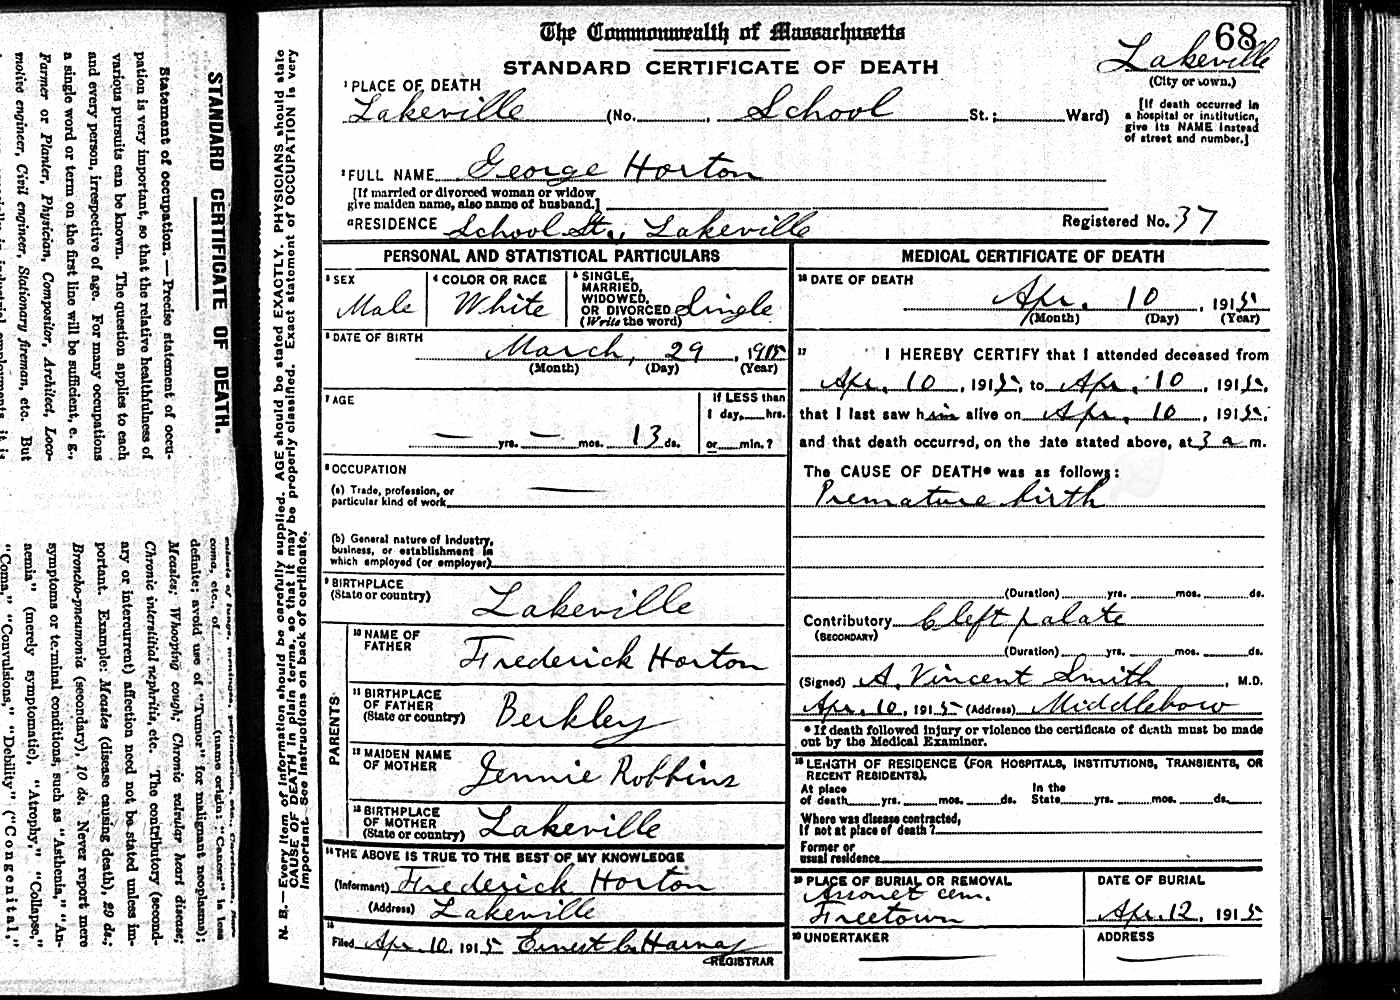 The Commonwealth of Massachusetts
68
STANDARD CERTIFICATE OF DEATH
Lakeville
(City or town.)
1 PLACE OF DEATH
Lakeville (No. , School St.; Ward)
[If death occurred in
a hospital or institution,
give its NAME instead
of street and number.]
2 FULL NAME George Horton
[If married or divorced woman or widow
give maiden name, also name of husband.]
a RESIDENCE School St., Lakeville
Registered No. 37
PERSONAL AND STATISTICAL PARTICULARS
3 SEX
Male
4 COLOR OR RACE
White
5 SINGLE,
MARRIED,
WIDOWED,
OR DIVORCED Single
(Write the word)
6 DATE OF BIRTH
March, 29, 1915
(Month) (Day) (Year)
7 AGE
— yrs. — mos. 13 ds.
If LESS than
1 day, hrs.
or min.?
8 OCCUPATION
(a) Trade, profession, or
particular kind of work
—
(b) General nature of industry,
business, or establishment in
which employed (or employer)
9 BIRTHPLACE
(State or country)
Lakeville
PARENTS
10 NAME OF
FATHER
Frederick Horton
11 BIRTHPLACE
OF FATHER
(State or country)
Berkley
12 MAIDEN NAME
OF MOTHER
Jennie Robbins
13 BIRTHPLACE
OF MOTHER
(State or country)
Lakeville
14 THE ABOVE IS TRUE TO THE BEST OF MY KNOWLEDGE
(Informant) Frederick Horton
(Address) Lakeville
15
Filed Apr 10, 1915 Ernest
REGISTRAR
MEDICAL CERTIFICATE OF DEATH
16 DATE OF DEATH
Apr. 10, 1915
(Month) (Day) (Year)
17 I HEREBY CERTIFY that I attended deceased from
Apr. 10, 1915, to Apr. 10, 1915,
that I last saw him alive on Apr. 10, 1915,
and that death occurred, on the date stated above, at 3 a m.
The CAUSE OF DEATH* was as follows:
Premature birth
(Duration) yrs. mos. ds.
Contributory Cleft palate
(SECONDARY)
(Duration) yrs. mos. ds.
(Signed) A. Vincent Smith, M.D.
Apr. 10, 1915 (Address) Middleboro
* If death followed injury or violence the certificate of death must be made
out by the Medical Examiner.
18 LENGTH OF RESIDENCE (FOR HOSPITALS, INSTITUTIONS, TRANSIENTS, OR
RECENT RESIDENTS).
At place
of death yrs. mos. ds.
In the
State yrs. mos. ds.
Where was disease contracted,
if not at place of death?
Former or
usual residence
19 PLACE OF BURIAL OR REMOVAL
Assonet cem.
Freetown
DATE OF BURIAL
Apr. 12, 1915
20 UNDERTAKER
—
ADDRESS
—
N. B.—Every item of information should be carefully supplied. AGE should be stated EXACTLY. PHYSICIANS should state
CAUSE OF DEATH in plain terms, so that it may be properly classified. Exact statement of OCCUPATION is very
important. See instructions on back of certificate.
STANDARD CERTIFICATE OF DEATH.
Statement of occupation.—Precise statement of occu-
pation is very important, so that the relative healthfulness of
various pursuits can be known. The question applies to each
and every person, irrespective of age. For many occupations
a single word or term on the first line will be sufficient, e. g.,
Farmer or Planter, Physician, Compositor, Architect, Loco-
motive engineer, Civil engineer, Stationary fireman, etc. But
coma, etc., of (name origin: "Cancer" is less
definite; avoid use of "Tumor" for malignant neoplasms);
Measles; Whooping cough; Chronic valvular heart disease;
Chronic interstitial nephritis, etc. The contributory (second-
ary or intercurrent) affection need not be stated unless im-
portant. Example: Measles (disease causing death), 29 ds.;
Broncho-pneumonia (secondary), 10 ds. Never report mere
symptoms or terminal conditions, such as "Asthenia," "An-
aemia" (merely symptomatic), "Atrophy," "Collapse,"
"Coma," "Convulsions," "Debility" ("Congenital,"